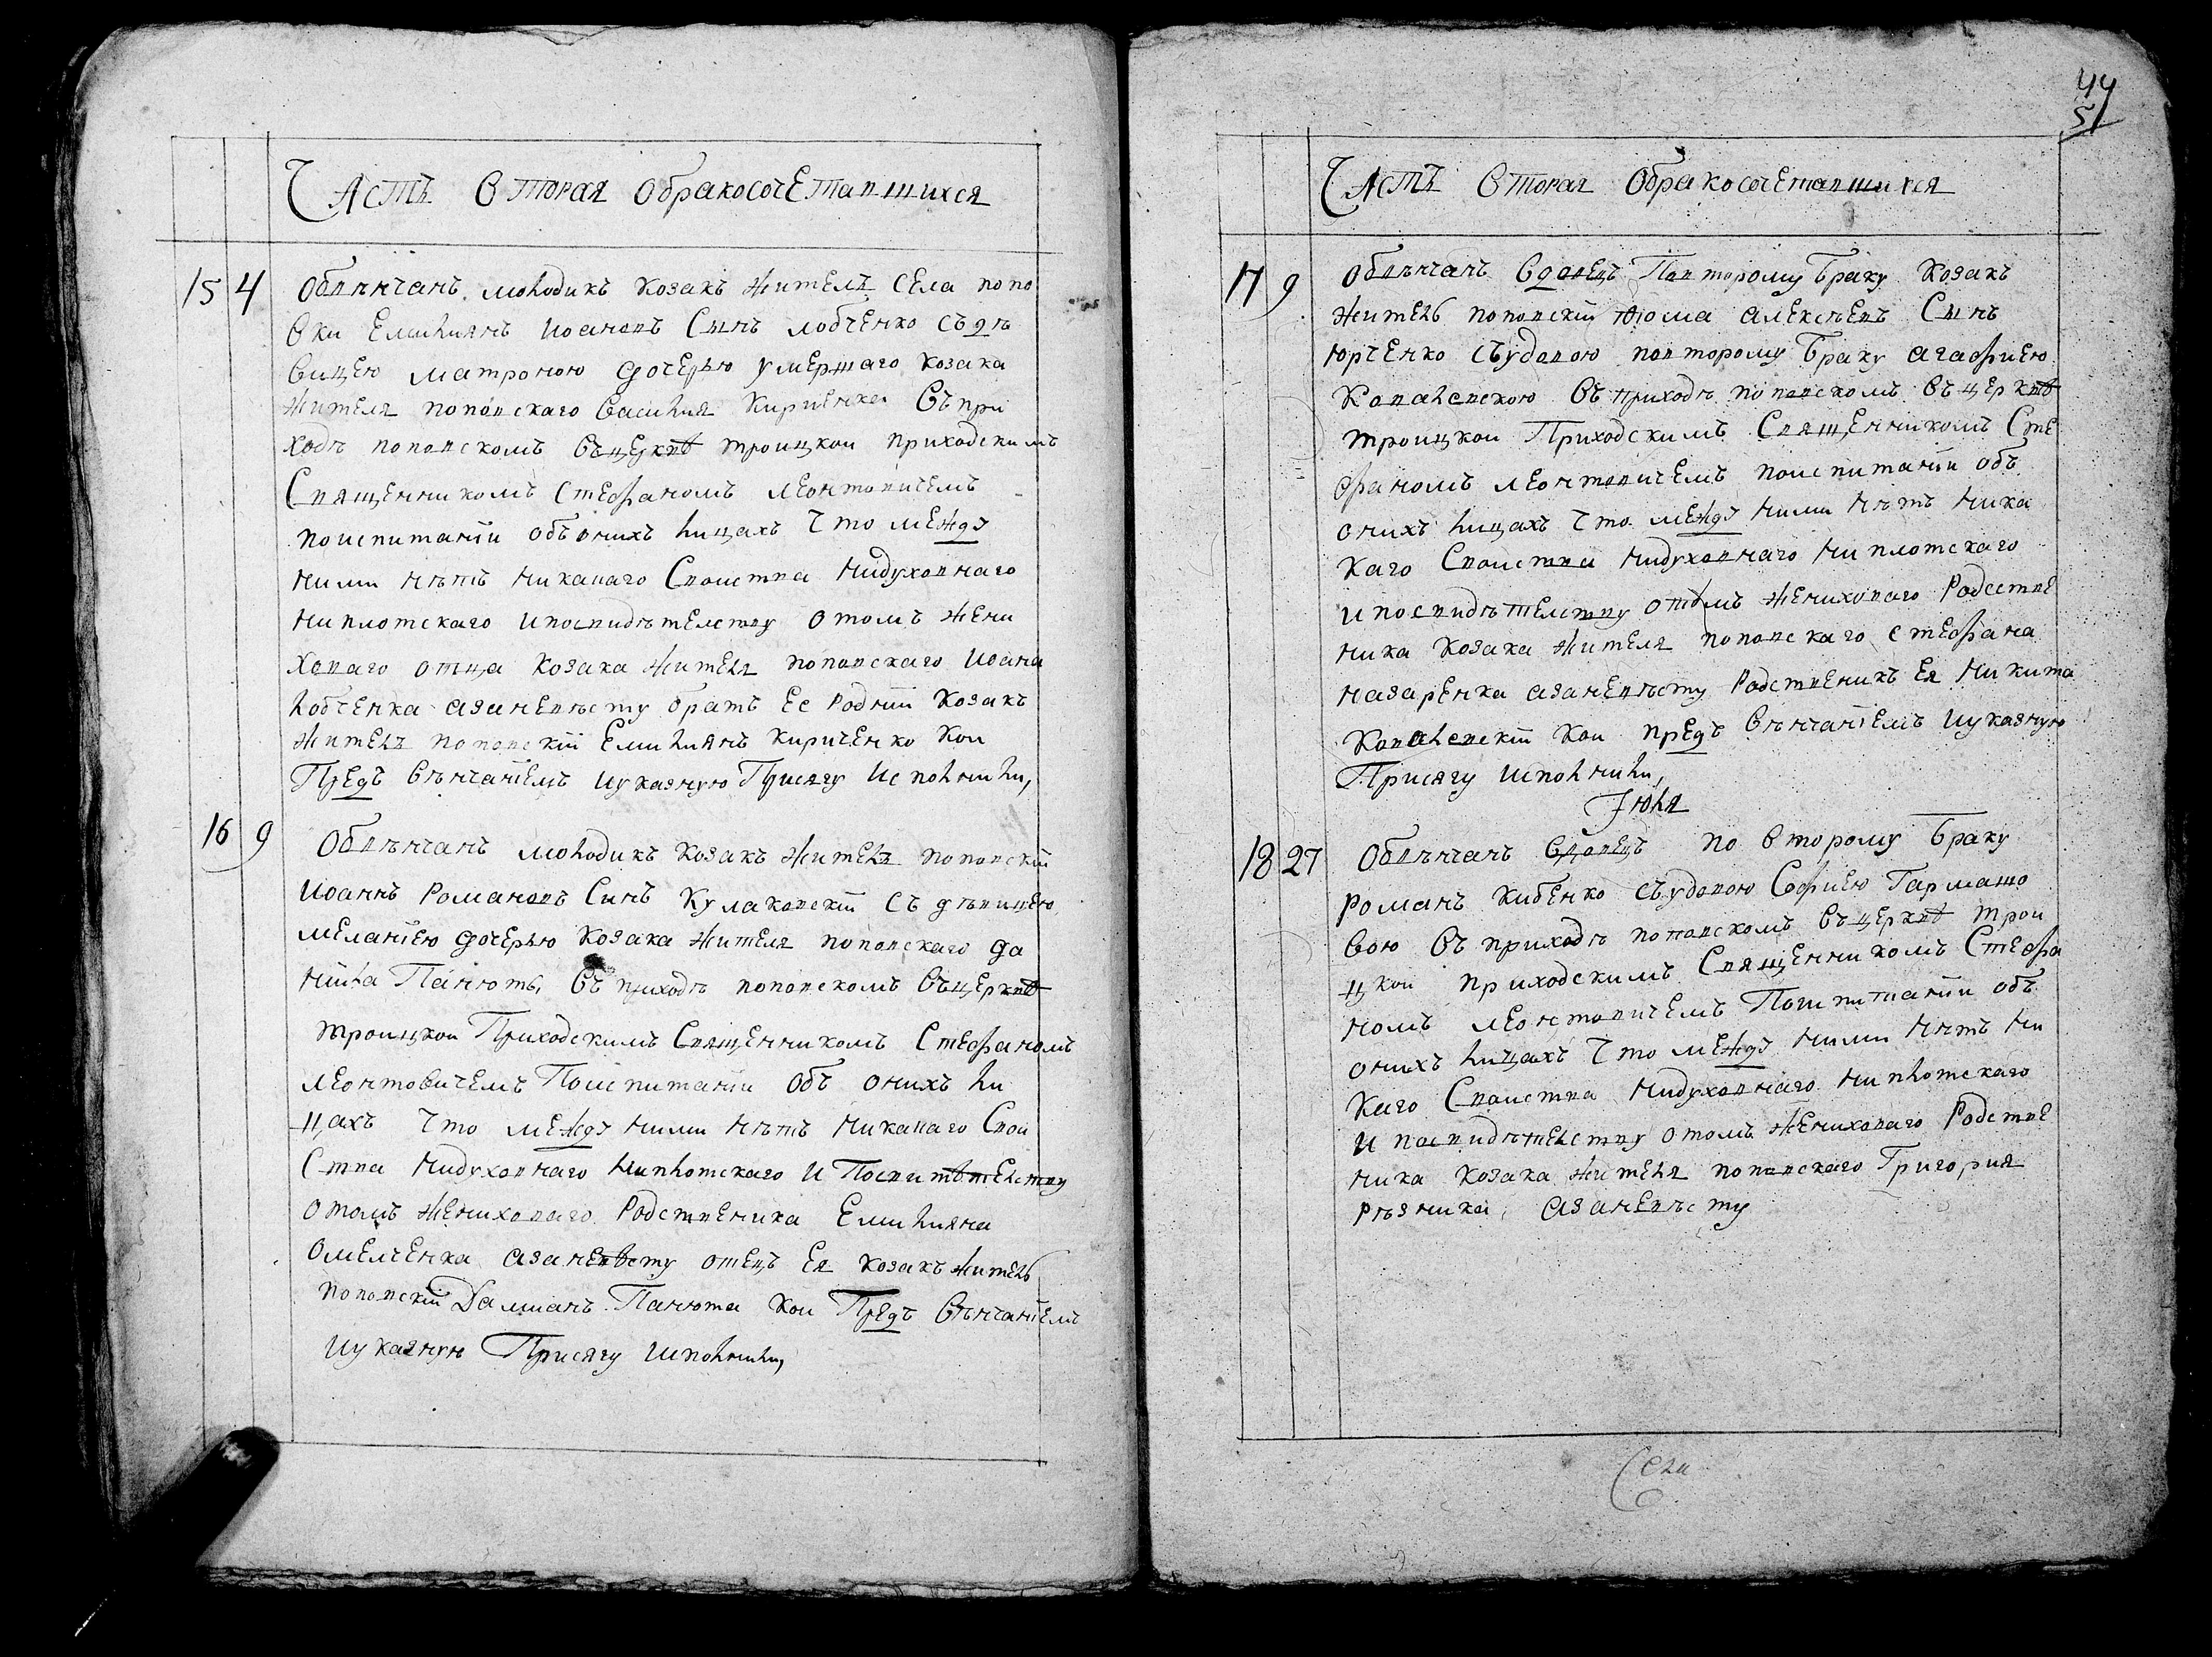 Часть вторая обракосочетавшихся
15 4 Обвѣнчанъ молодикъ козакъ житель села попо
вки Емилиянъ Иоановъ Сынъ лобченко съ дѣ
вицею матроною дочерью умершаго козака
жителя поповскаго Василия Кириченка въ при
ходѣ поповскомъ въ церквѣ троицкои приходскимъ
Священникомъ Стефаномъ леонтовичемъ
по испитаніи объ онихъ лицахъ что между
ними нѣтъ никаваго Своиства нидуховнаго
ниплотскаго и посвидѣтелству отомъ жени
ховаго отца козака жителя поповскаго Иоана
лобченка азаневѣсту братъ ее родній козакъ
житель поповскій Емилиянъ кириченко кои
Предъ вѣнчаніемъ иуказную Присягу Исполнили,
16 9 Обвѣнчанъ молодикъ козакъ житель поповскій
Иоаннъ Романовъ Синъ Кулаковскій съ дѣвицею
меланіею дочерью козака жителя поповскаго да
міяна Панюты, въ приходѣ поповскомъ въ церквѣ
троицкои Приходскимъ Священникомъ Стефаномъ
леонтовичемъ Поиспитаніи объ онихъ ли
цахъ что между ними нѣтъ никаваго Свои
Ства нидуховнаго ниплотскаго и Посвитѣтелству
отомъ жениховаго Родственика Емилияна
Омелченка азаневѣсту отецъ Ея козакъ житель
поповскій Дамианъ Панюта кои Предъ вѣнчаніемъ
иуказную Присягу исполнили,
44
51
Часть вторая Обракосочетавшихся
17 9 Обвѣнчанъ вдовецъ Повторому браку козакъ
житель поповскій Фома алексѣевъ Сынъ
Юрченко съудовою повторому браку агафиею
Ковалевскою въ приходѣ поповскомъ въ церквѣ
троицкои Приходскимъ Священникомъ Сте
фаномъ леонтовичемъ поиспитаніи объ
онихъ лицахъ что между ними нѣтъ ника
каго Своиства нидуховнаго ни плотскаго
и посвидѣтелству отомъ жениховаго Родстве
ника козака жителя поповскаго стефана
назаренка азаневѣсту Родственикъ Ея никита
Ковалевскій кои предъ вѣнчаніемъ иуказную
Присягу исполнили,
Июля
18 27 Обвѣнчанъ вдовецъ по второму браку
Романъ кибенко съудовою Софиею Гармашо
вою въ приходѣ поповскомъ въ церквѣ трои
цкои приходскимъ Священникомъ Стефа
номъ леонтовичемъ Поиспитаніи объ
онихъ лицахъ что между ними нѣтъ ни
каго Своиства нидуховнаго ниплотскаго
и посвидѣтелству отомъ жениховаго Родстве
ника козака жителя поповскаго Григория
рѣзника, азаневѣсту